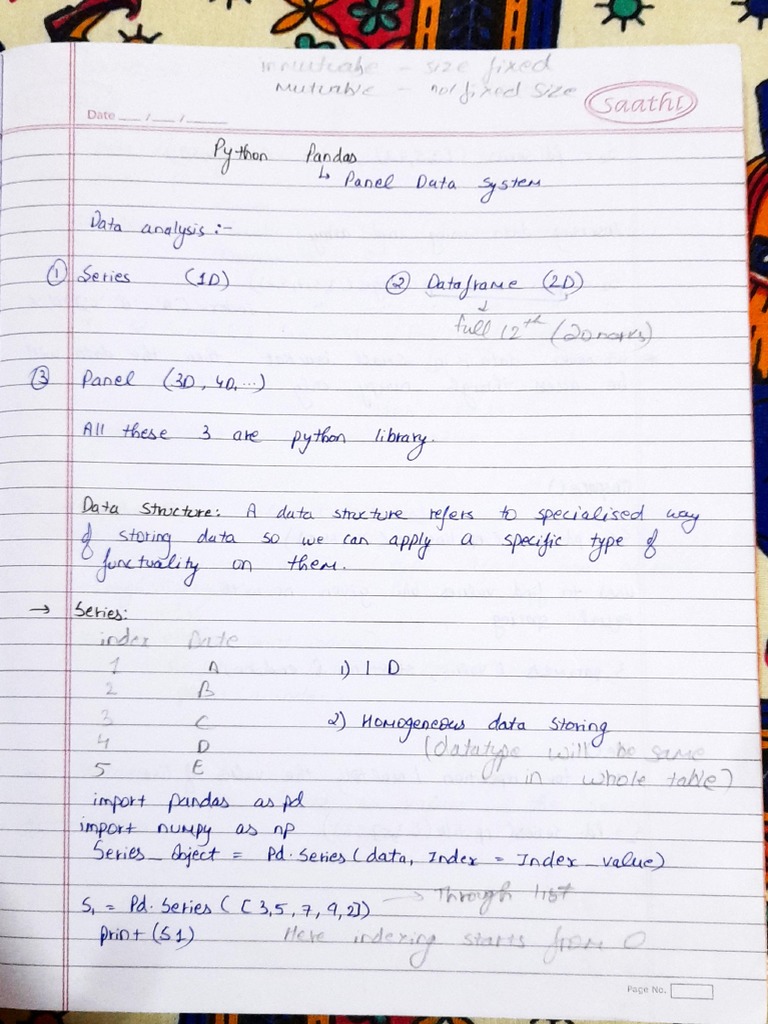 Immutable - size fixed
Mutuable - not fixed size
saathi
Date __/__/____
Python Pandas
↳ Panel Data System
Data analysis :-
① Series (1D) ② Dataframe (2D)
↓
full 12th (20 marks)
③ Panel (3D, 4D, ...)
All these 3 are python library.
Data Structure: A data structure refers to specialised way
of storing data so we can apply a specific type of
functuality on them.
→ Series:
index Date
1 A 1) 1 D
2 B
3 C 2) Homogeneous data storing
4 D (datatype will be same
5 E in whole table)
import pandas as pd
import numpy as np
Series_Object = Pd.Series (data, Index = Index_value)
S1 = Pd.Series ([3,5,7,9,2]) → Through list
print (S1) Here indexing starts from 0
Page No.